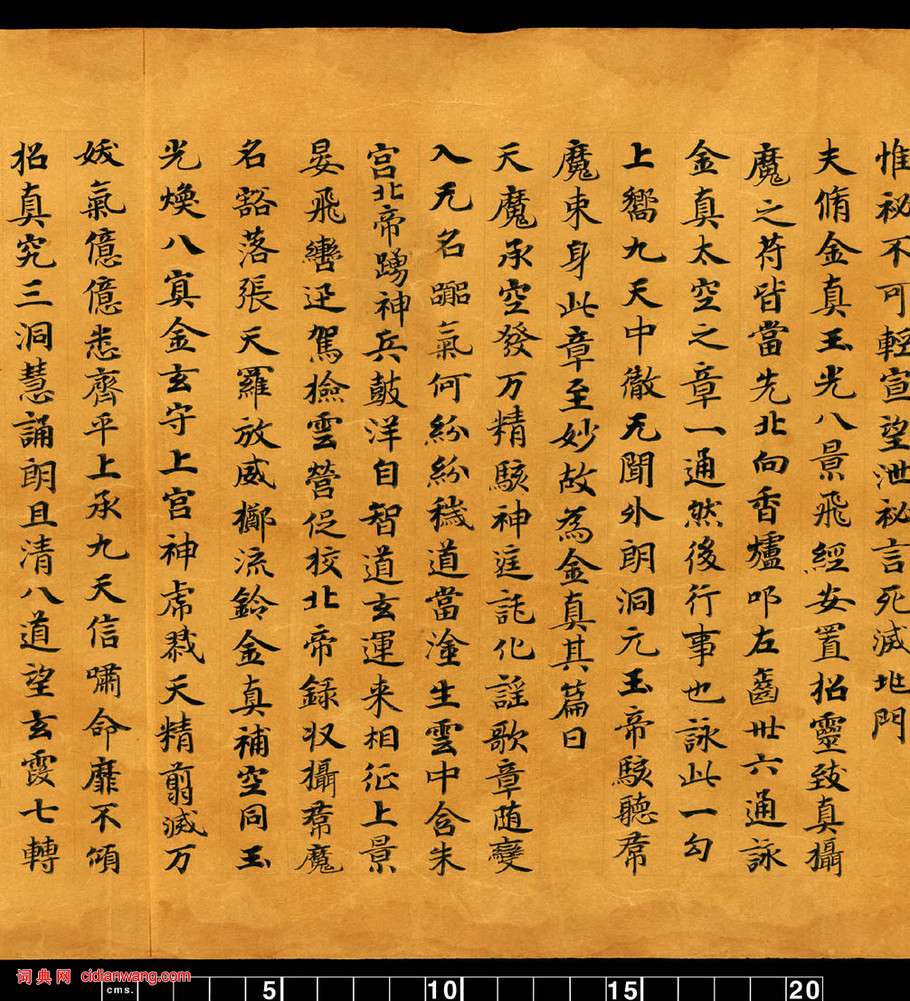 惟祕不可輕宣望泄祕言死滅地門
夫脩金真玉光八景飛經安置招靈致真攝
魔之苻皆當先北向香爐叩左齒卅六通詠
金真太空之章一通然後行事也詠此一句
上嚮九天中徹无聞外朗洞元玉帝駭聽羣
魔束身此章至妙故為金真其篇曰
天魔承空發万精駭神庭託化謡歌章随變
入无名躡氣何紛紛穢道當塗生雲中含朱
宫北帝踴神兵鼓洋自智道玄運来相征上景
晏飛轡迅駕撿雲營促校北帝録収攝羣魔
名豁落張天羅放威擲流鈴金真補空同玉
光煥八寘金玄守上宫神虎戮天精翦滅万
妖氣億億悉齊平上承九天信嘯命靡不傾
招真究三洞慧誦朗且清八道望玄霞七轉
词典网 cidianwang.com
cms. 5 10 15 20